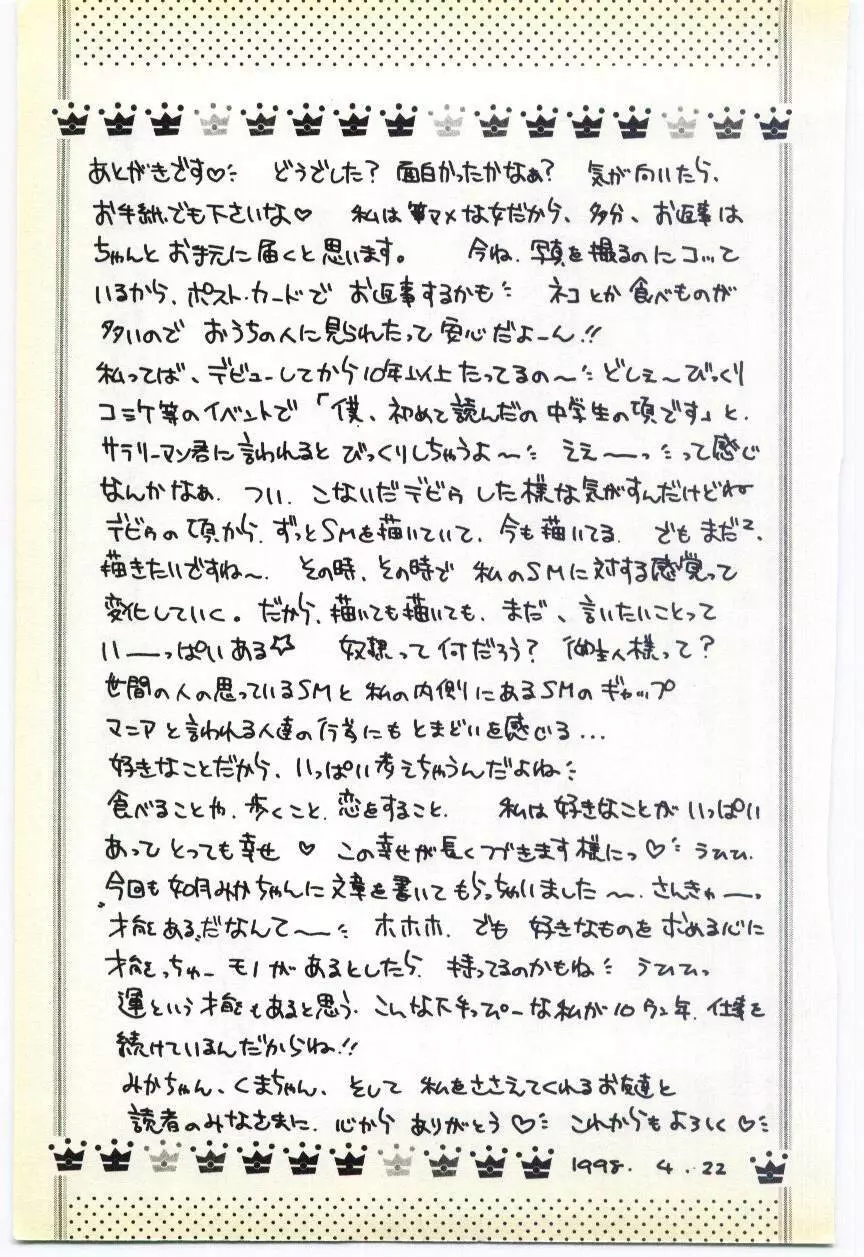 あとがきです♡ どうでした？ 面白かったかなぁ？ 気が向いたら、
お手紙でも下さいな♡ 私は筆マメな女だから、多分、お返事は
ちゃんとお手元に届くと思います。 今ね、写真を撮るのにコッて
いるから、ポスト・カードで お返事するかも ネコとか食べものが
多いので おうちの人に見られたって安心だよーん!!
私ってば、デビューしてから10年以上たってるの〜 どしぇ〜びっくり
コミケ等のイベントで「僕、初めて読んだの中学生の頃です」と、
サラリーマン君に言われると びっくりしちゃうよ〜 ええーっって感じ
なんかなぁ、つい、こないだデビゥした様な気がすんだけどね
デビゥの頃から、ずっとSMを描いていて、今も描いてる。 でもまだ2、
描きたいですね〜。 その時、その時で 私のSMに対する感覚って
変化していく。だから、描いても描いても、まだ、言いたいことって
いーっぱいある☆ 奴隷って何だろう？ 御主人様って？
世間の人の思っているSMと 私の内側にあるSMのギャップ
マニアと言われる人達の行為にもとまどいを感じる...
好きなことだから、いっぱい考えちゃうんだよね
食べることや、歩くこと、恋をすること、 私は好きなことがいっぱい
あって とっても幸せ ♡ この幸せが長くつづきます様にっ♡ うひひ、
今回も 如月みかちゃんに文章を書いてもらっちゃいました〜、さんきゅーっ
"才能ある"だなんて〜 ホホホ、でも 好きなものを求める心に
才能っちゅーモノがあるとしたら、持ってるのかもね うひひっ
運という才能もあると思う、こんな下手っぴーな私が10ウン年、仕事を
続けているんだからね!!
みかちゃん、くまちゃん、そして 私をささえてくれるお友達と
読者のみなさまに、心から ありがとう♡ これからもよろしく♡
1998. 4. 22